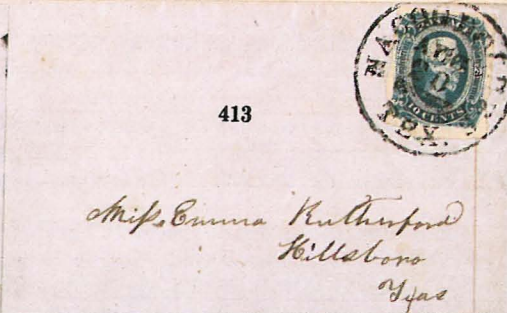 NACOGDOCHES
TEX.
TEN CENTS
413
Miss Emma Rutherford
Hillsboro
Texas